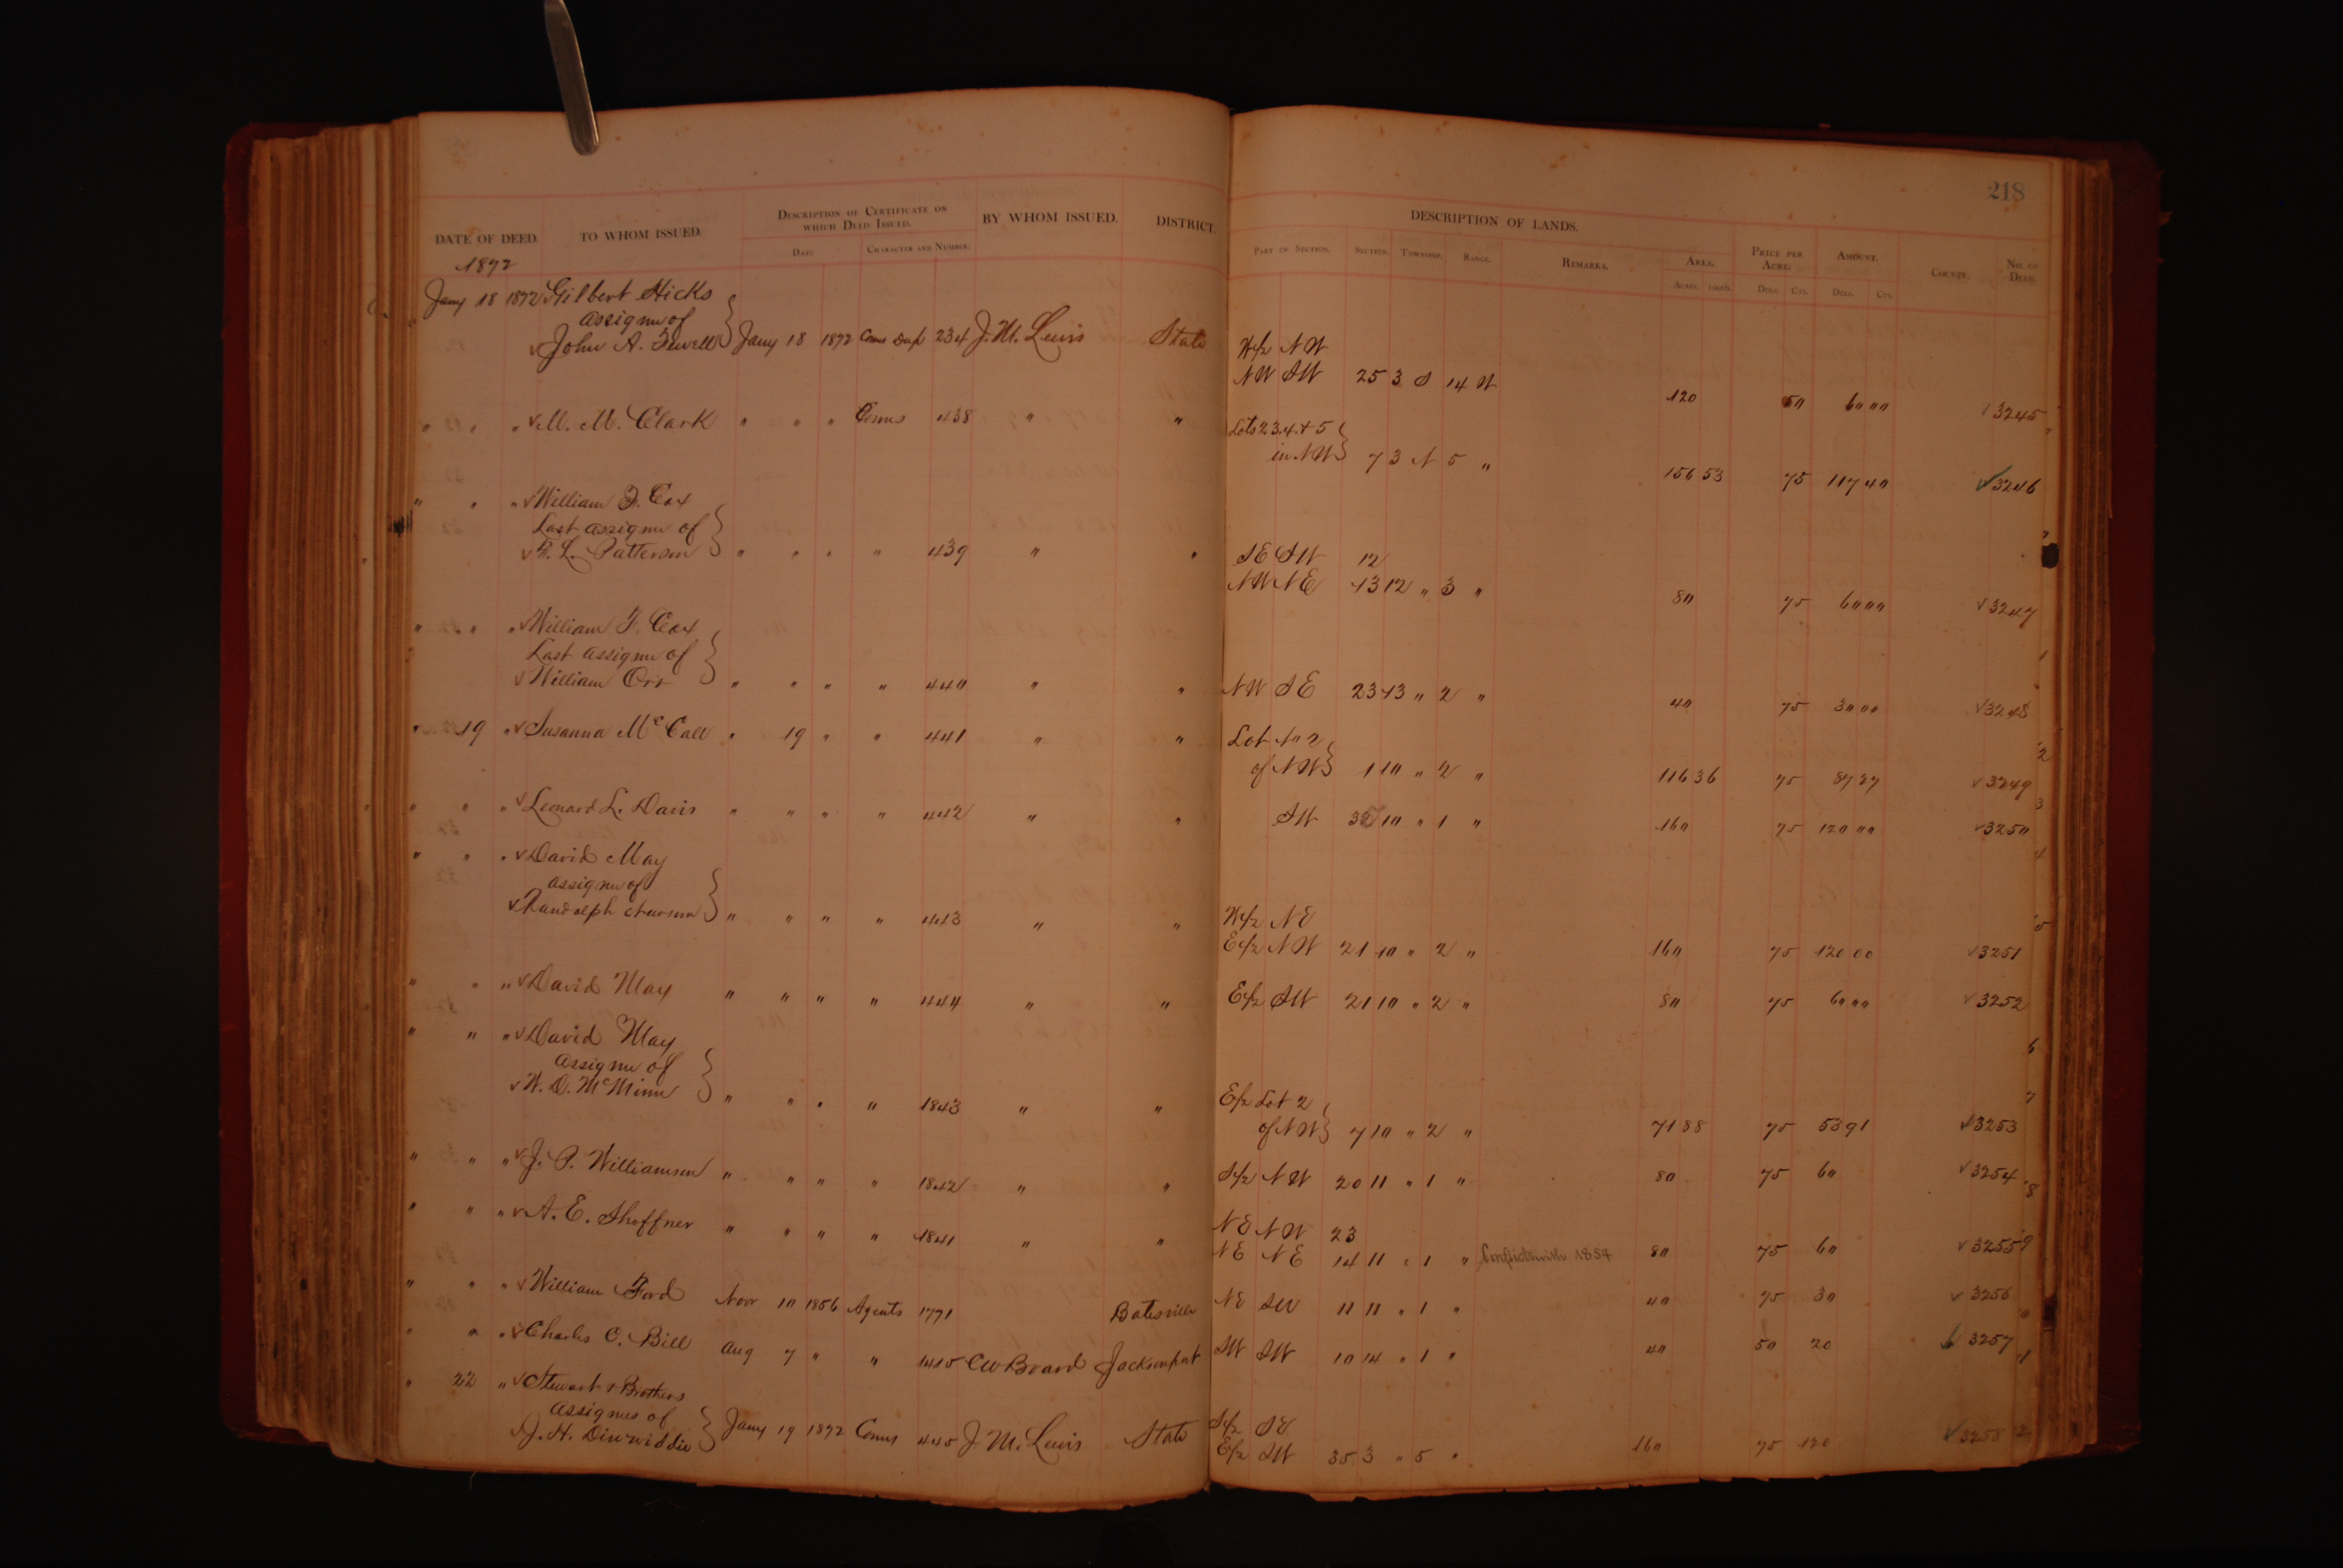 218
DATE OF DEED. TO WHOM ISSUED. DESCRIPTION OF CERTIFICATE ON WHICH DEED ISSUED. BY WHOM ISSUED. DISTRICT. DESCRIPTION OF LANDS. PRICE PER ACRE. AMOUNT. COUNTY. NO. OF DEED.
DATE CHARACTER AND NUMBER. PART OF SECTION. SECTION. TOWNSHIP. RANGE. REMARKS. AREA.
ACRES. 100TH. DOLS. CTS. DOLS. CTS.
1872
Jany 18 1872 Gilbert Hicks
assignee of
John A. Jewell } Jany 18 1872 Coms Dup 234 J. M. Lewis State W/2 NW
NW SW 25 3 S 14 W 120 50 60 00 3245
" " " M. M. Clark " " " Coms 438 " " Lots 2.3.4.+5
in NW } 7 3 N 5 " 156 53 75 117 40 3246
" " " William F. Cox
Last assignee of
L. Patterson } " " " " 439 " " SE SW 12
NW NE 13 12 " 3 " 80 75 60 00 3247
" " " William F. Cox
Last assignee of
William Orr } " " " " 440 " " NW SE 23 13 " 2 " 40 75 30 00 3248
" 19 " Susanna McCall " 19 " " 441 " " Lot No 2
of NW } 1 10 " 2 " 116 36 75 87 27 3249
" " " Leonard L. Davis " " " " 442 " " SW 10 " 1 " 160 75 120 00 3250
" " " David May
assignee of
Randolph } " " " " 443 " " W/2 NE
E/2 NW 21 10 " 2 " 160 75 120 00 3251
" " " David May " " " " 444 " " E/2 SW 21 10 " 2 " 80 75 60 00 3252
" " " David May
assignee of
W. D. McMinn } " " " " 1843 " " E/2 Lot 2
of NW } 7 10 " 2 " 71 88 75 53 91 3253
" " " J. P. Williamson " " " " 1842 " " S/2 NW 20 11 " 1 " 80 75 60 3254
" " " A. E. Shoffner " " " " 1841 " " NE NW 23
NE NE 14 11 " 1 " Conflicts with 1854 80 75 60 3255
" " " William Ford Novr 10 1856 Agents 1771 Batesville NE SW 11 11 " 1 " 40 75 30 3256
" " " Charles C. Bill Aug 7 " " 1415 CW Board Jacksonport SW SW 10 14 " 1 " 40 50 20 3257
" 22 " Stewart & Brothers
assignees of
J. H. Dinwiddie } Jany 19 1872 Coms 445 J. M. Lewis State S/2 SE
E/2 SW 35 3 " 5 " 160 75 120 3258